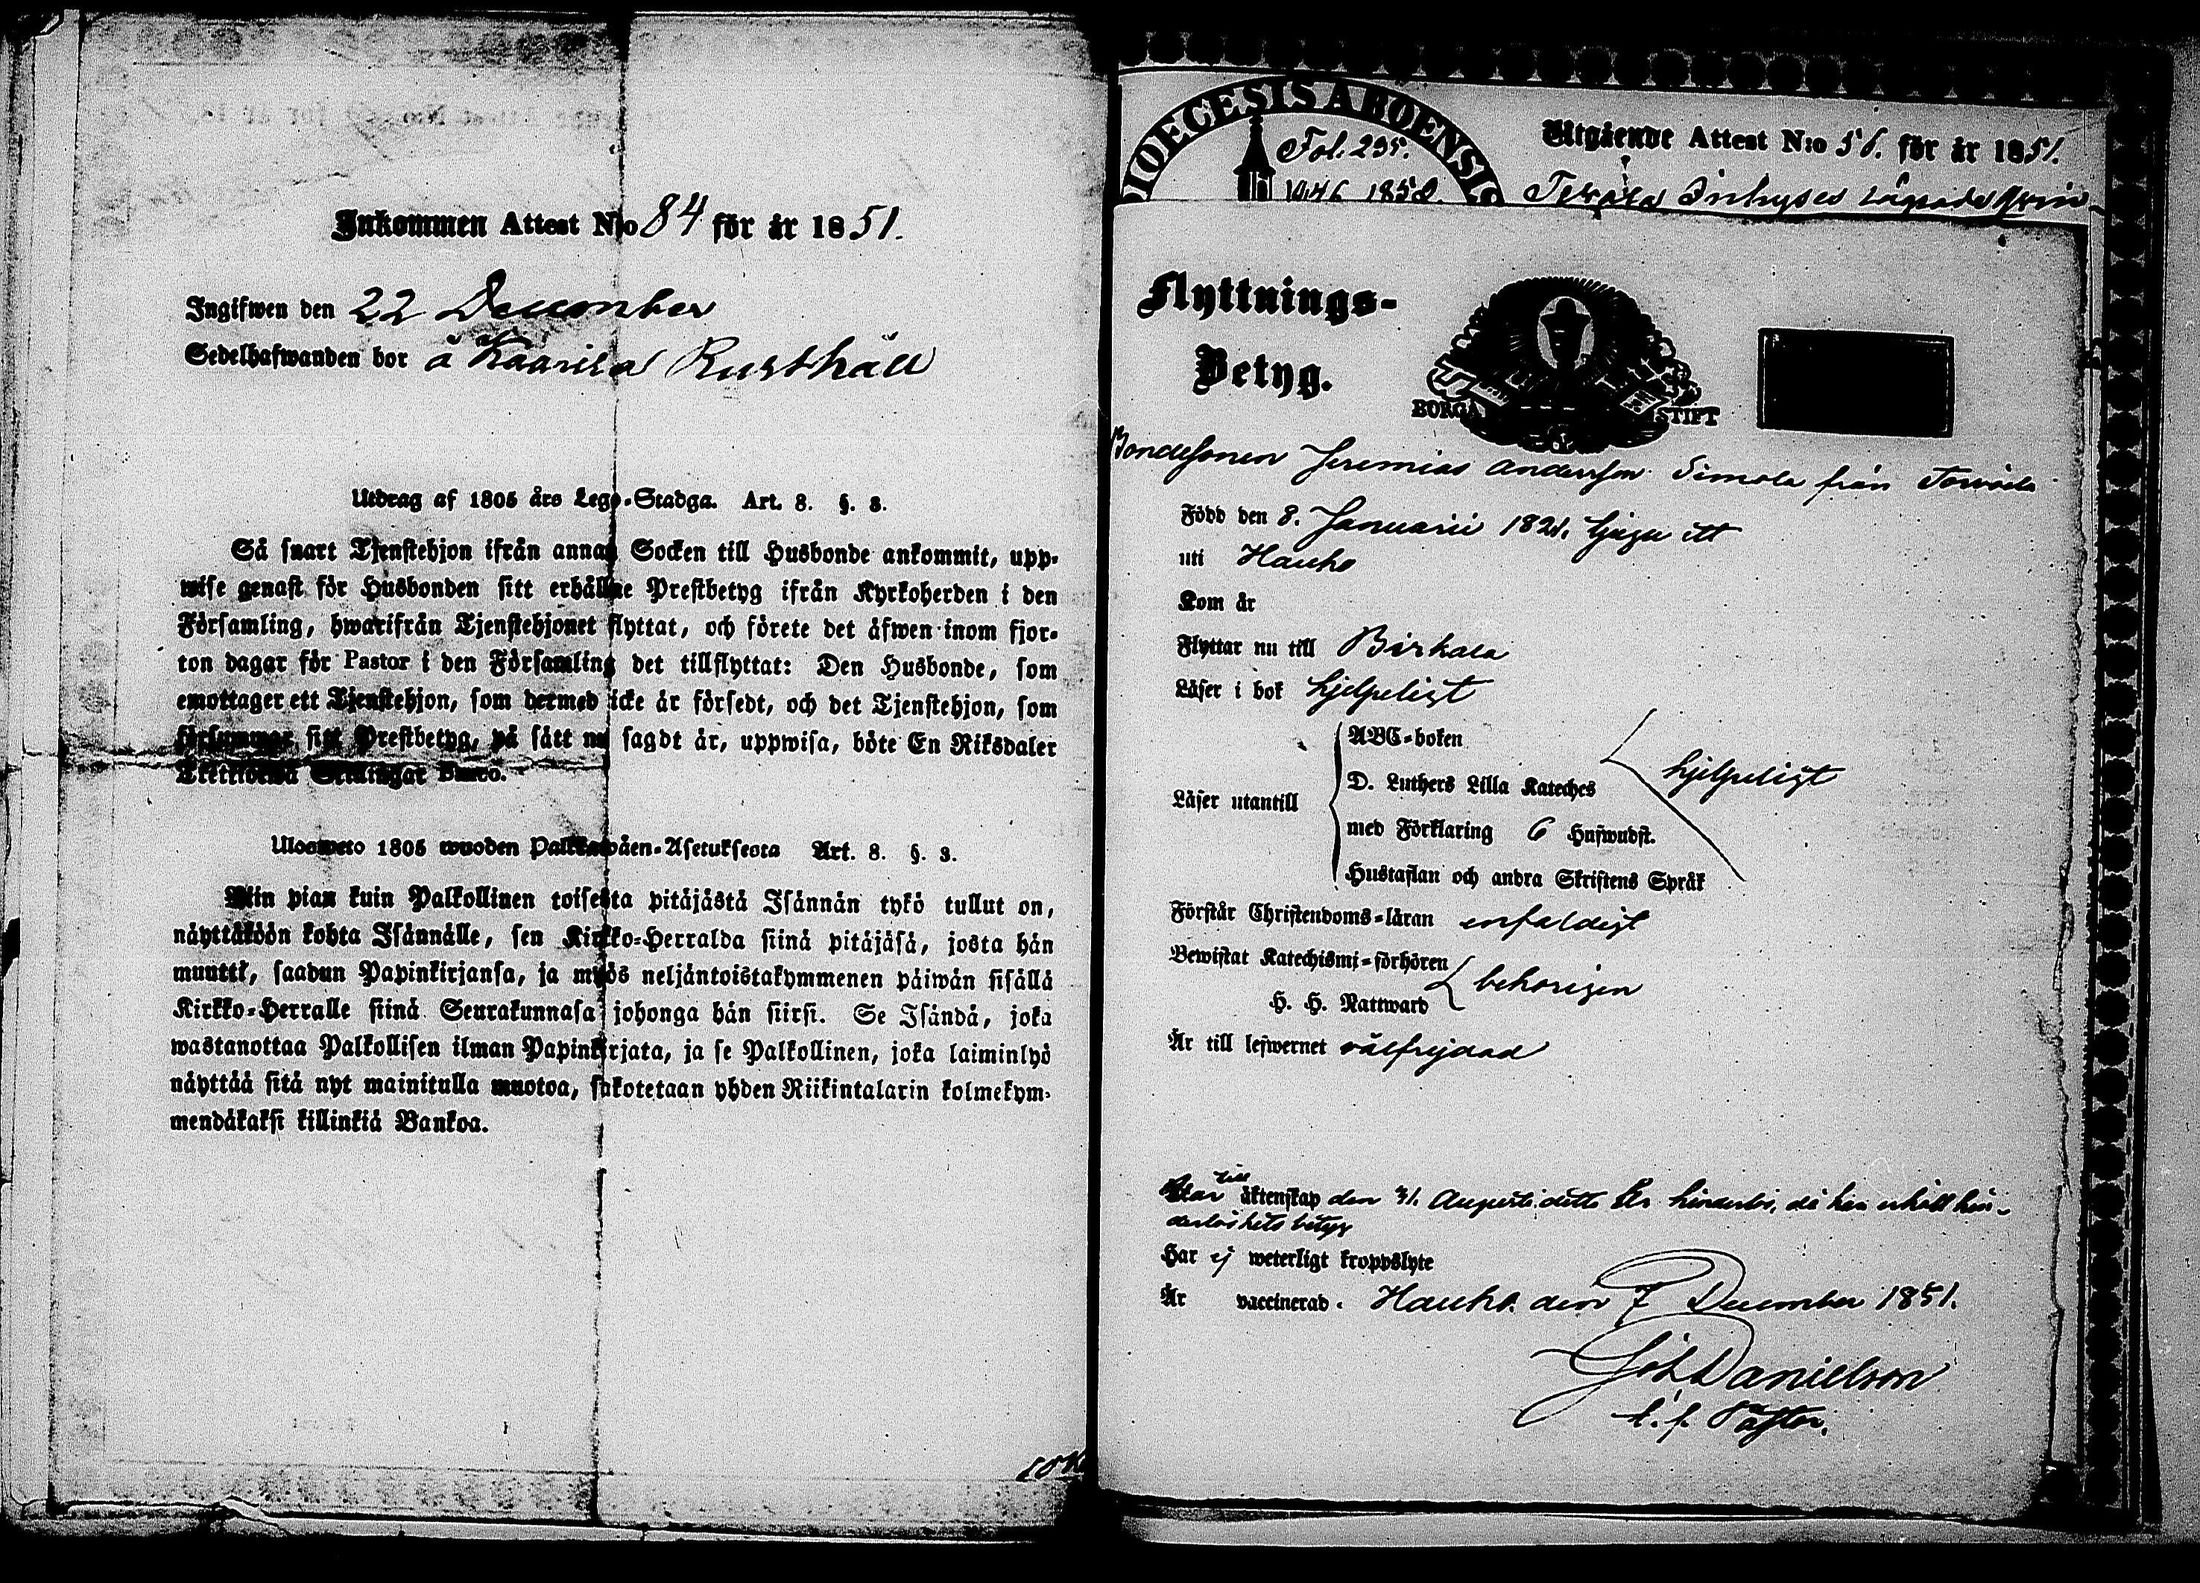 Inkommen Attest N:o 84 för år 1851.
Ingifwen den 22 December
Sedelhafwanden bor å Kaarila Rusthåll
Utdrag af 1805 års Lego-Stadga. Art. 8. §. 3.
Så snart Tjenstehjon ifrån annan Socken till Husbonde ankommit, upp-
wise genast för Husbonden sitt erhållne Prestbetyg ifrån Kyrkoherden i den
Församling, hwarifrån Tjenstehjonet flyttat, och förete det äfwen inom fjor-
ton dagar för Pastor i den Församling det tillflyttat: Den Husbonde, som
emottager ett Tjenstehjon, som dermed icke är försedt, och det Tjenstehjon, som
försummar sitt Prestbetyg, på sätt nu sagdt är, uppwisa, böte En Riksdaler
Trettiotwå Skillingar Banco.
Ulosweto 1805 wuoden Palkkawäen-Asetuksesta Art. 8. §. 3.
Niin pian kuin Palkollinen toisesta pitäjästä Isännän tykö tullut on,
näyttäköön kohta Isännälle, sen Kirkko-Herralda siinä pitäjäsä, josta hän
muutti, saadun Papinkirjansa, ja myös neljäntoistakymmenen päiwän sisällä
Kirkko-Herralle siinä Seurakunnasa johonga hän siirsi. Se Isändä, joka
wastanottaa Palkollisen ilman Papinkirjata, ja se Palkollinen, joka laiminlyö
näyttää sitä nyt mainitulla muotoa, sakotetaan yhden Riikintalarin kolmekym-
mendäkaksi killinkiä Bankoa.
DIOECESIS ABOENSIS
Fol. 295.
1846 1850.
Utgående Attest N:o 56. för år 1851.
Inhyses
Flyttnings-
Betyg.
BORGÅ STIFT
Bondesonen Jeremias Andersson Simola från Torvoila
Född den 8. Januarii 1821. tjugu ett
uti Hauho
Kom år
Flyttar nu till Birkala
Läser i bok hjelpeligt
Läser utantill
ABC-boken
D. Luthers Lilla Kateches
med Förklaring 6 Hufwudst.
Hustaflan och andra Skriftens Språk
hjelpeligt
Förstår Christendoms-läran enfaldigt
Bewistat Katechismi-förhören
H. H. Nattward
behörigen
Är till lefwernet välfrejdad
Var till äktenskap den 31. Augusti detta år hinderlös, då han erhöll hin-
derlöshets betyg
Har ej weterligt kroppslyte
Är vaccinerad. Hauho den 7 December 1851.
Joh Danielson
t. f. Pastor.